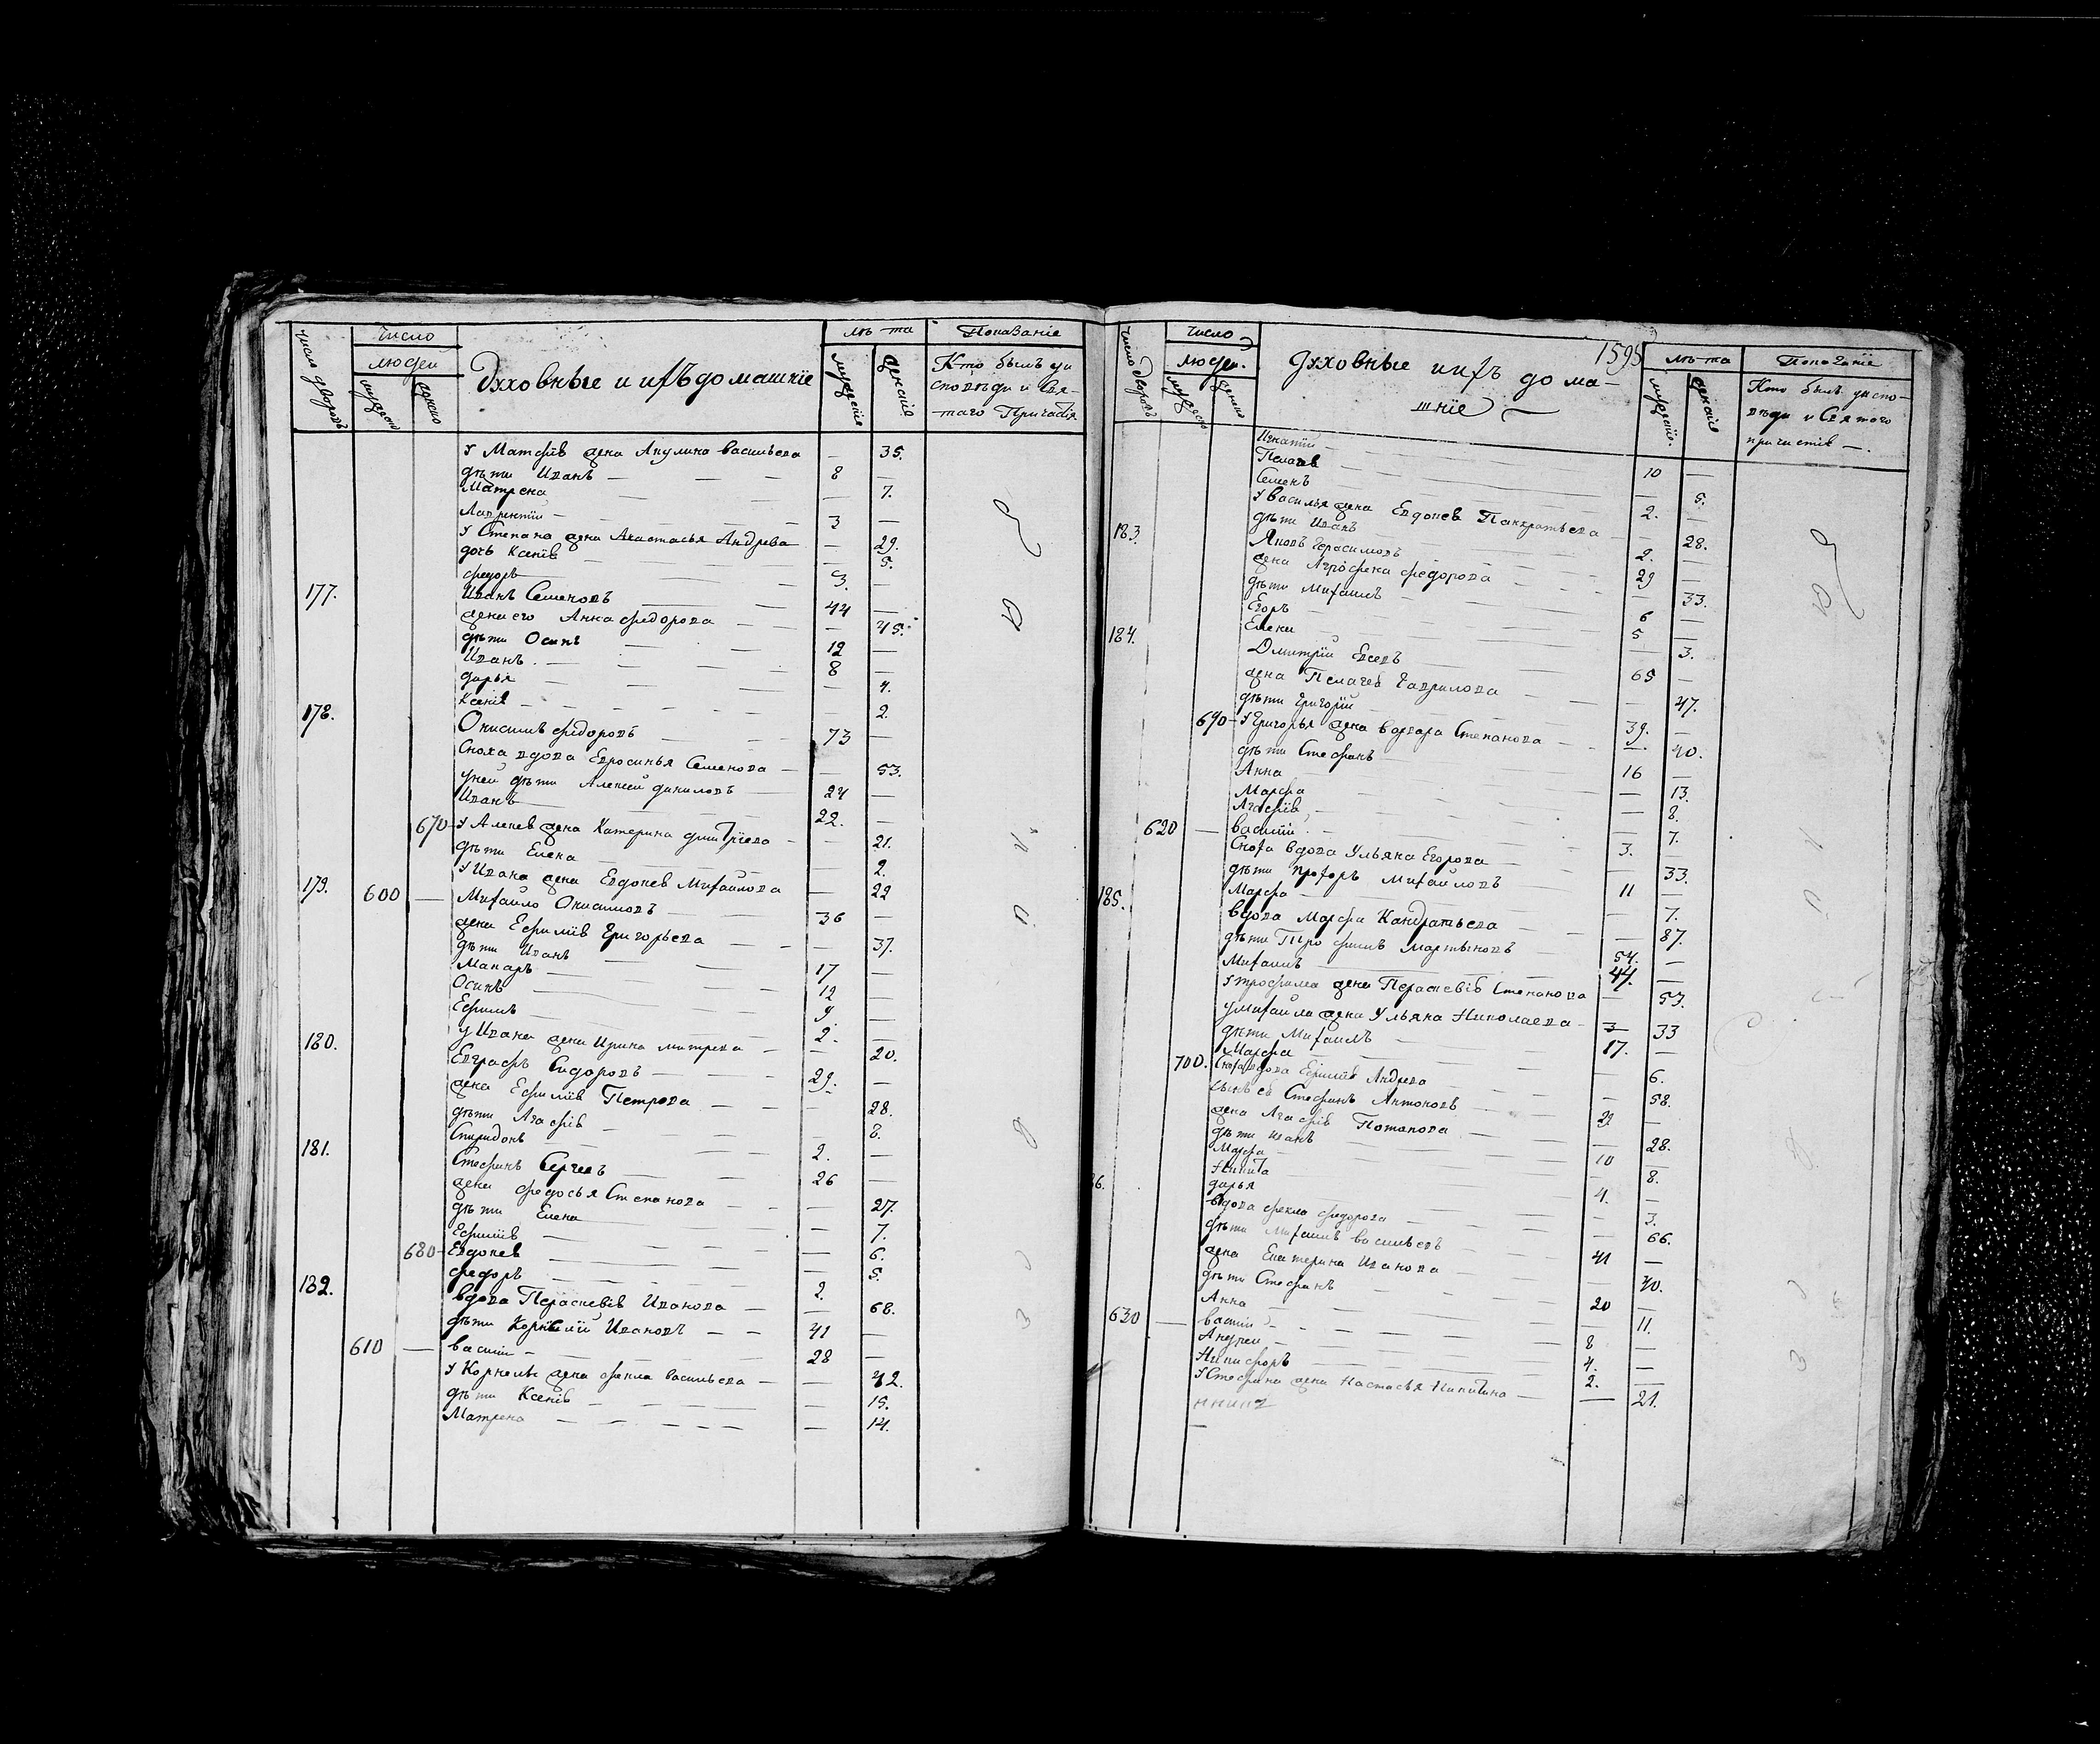 Число дворовъ
Число
людеи
мужеско
женско
Духовныеи ихъ домашнїе
лѣ-та
мужескїе
женскїе
Показанїе
Кто былъ уи
сповѣди и Свя-
таго Причастїя
У Матфѣя жена Акулина васильева — 35.
дѣти Иванъ — — — 8 —
Матрена — — 7.
Лаврентїи — — 3 —
У Степана жена Анастасья Андрева — 29.
дочь Ксенїя — — 5.
федоръ — — 3. —
177. Иванъ Семеновъ — — 44 —
жена его Анна федорова — — — 45.
дѣти Осипъ — — 12 —
Иванъ. — — — 8 —
дарья — — — — 4.
Ксенїя — — — — 2.
178. Онисимъ федоровъ — — 73 —
Сноха вдова Евросинья Семенова — — 53.
унеи дѣти Алексеи даниловъ — 24 —
Иванъ — — 22. —
670 У Алексея жена Катерина дмитрїева — — 21.
дѣти Елена — — — 2.
У Ивана жена Евдокея Михаилова — 22
179. 600 — Михаило Онисимовъ — — 36 —
жена Ефимїя Григорьева — — — 37.
дѣти Иванъ — — 17 —
Макаръ — — 12 —
Осипъ — — 9 —
Ефимъ — — 2. —
у Ивана жена Ирина митрева — — 20.
180. Евграфъ Сидоровъ — — 29. —
жена Ефимїя Петрова — — — 28.
дѣти Агафїя — — 8.
Спиридонъ — — 2. —
181. Стефанъ Сергеевъ — — 26 —
жена федосья Степанова — — — 27.
дѣти Елена — — 7.
Ефимїя — — — 6.
680 Евдокея — — — 5.
федоръ — — 2. —
182. вдова Перасковїя Иванова — — 68.
дѣти Корнилїй Ивановъ — — 41 —
610 — васили — — — 28 —
У Корнелья жена фекла васильева — — 42.
дѣти Ксенїя — — — 15.
Матрена — — — — 14.
Число дворовъ
Число
людеи.
мужеско
женско
Духовные иихъ дома-
шнїе
1595
лѣ-та
мужескїе.
женскїе
Показанїе
Кто былъ уиспо-
вѣди и Святаго
причистїя —.
Игнатїи — — 10 —
Пелагея — — — 5.
Семенъ — — 2. —
У василья жена Евдокея Панкратьева — — 28.
дѣти Иванъ — — 2. —
183. Яковъ Герасимовъ — — 29 —
жена Агрофена федорова — — — 33.
дѣти Михаилъ — — 6 —
Егоръ — — 5 —
Елена — — — 3.
184. Дмитрїй Евсевъ — — 65 —
жена Пелагея Гаврилова — — 47.
дѣти Григорїй — — 39. —
690 У Григорья жена варвара Степанова — — 40.
дѣти Стефанъ — — 16 —
Анна — — — 13.
Марфа — — — 8.
Агафїя — — — 7.
620 — васили — — 3. —
Сноха вдова Ульяна Егорова — — 33.
дѣти прохоръ Михаиловъ — 11 —
Марфа — — — 7.
185. вдова Марфа Кандратьева — — — 87.
дѣти Трофимъ Мартыновъ — 54. —
Михаилъ — — 44. —
У трофима жена Перасковїя Степанова — 53.
у михаила жена Ульяна Николаева — — 33
дѣти Михаилъ — — 17. —
Марфа — — — 6.
700. Сноха вдова Ефимїя Андрева — — 58.
сынъ ея Стефанъ Антоновъ — 29 —
жена Агафїя Потапова — — 28.
дѣти Иванъ — — 10 —
Марфа — — — 8.
Никита — — 4. —
дарья — — — 3.
86. вдова фекла федорова — — 66.
дѣти Михаилъ васильевъ — 41 —
жена Екатерина Иванова — — 40.
дѣти Стефанъ — — 20 —
Анна — — — 11.
630 — васили — — 8 —
Андреи — — 4. —
Никифоръ — — 2. —
У Стефана жена Настасья Никитина — — 21.